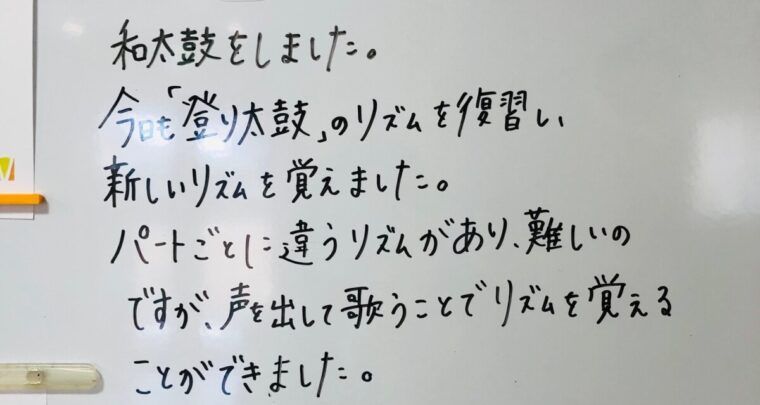 和太鼓をしました。
今日も「登り太鼓」のリズムを復習し、
新しいリズムを覚えました。
パートごとに違うリズムがあり、難しいの
ですが、声を出して歌うことでリズムを覚える
ことができました。